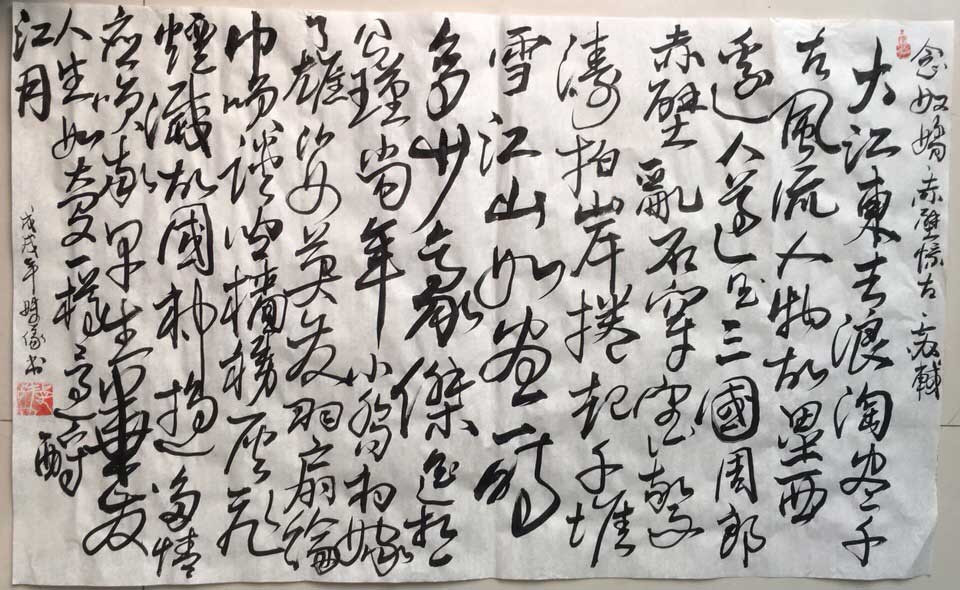 念奴嬌赤壁懷古 蘇軾
大江東去浪淘盡千
古風流人物故壘西
邊人道是三國周郎
赤壁亂石穿空驚
濤拍岸捲起千堆
雪江山如畫一時
多少豪傑遙想
公瑾當年小喬初嫁
了雄姿英發羽扇綸
巾笑談間檣櫓灰飛
煙滅故國神遊多情
應笑我早生華发
人生如夢一樽還酹
江月
戊戌年 书